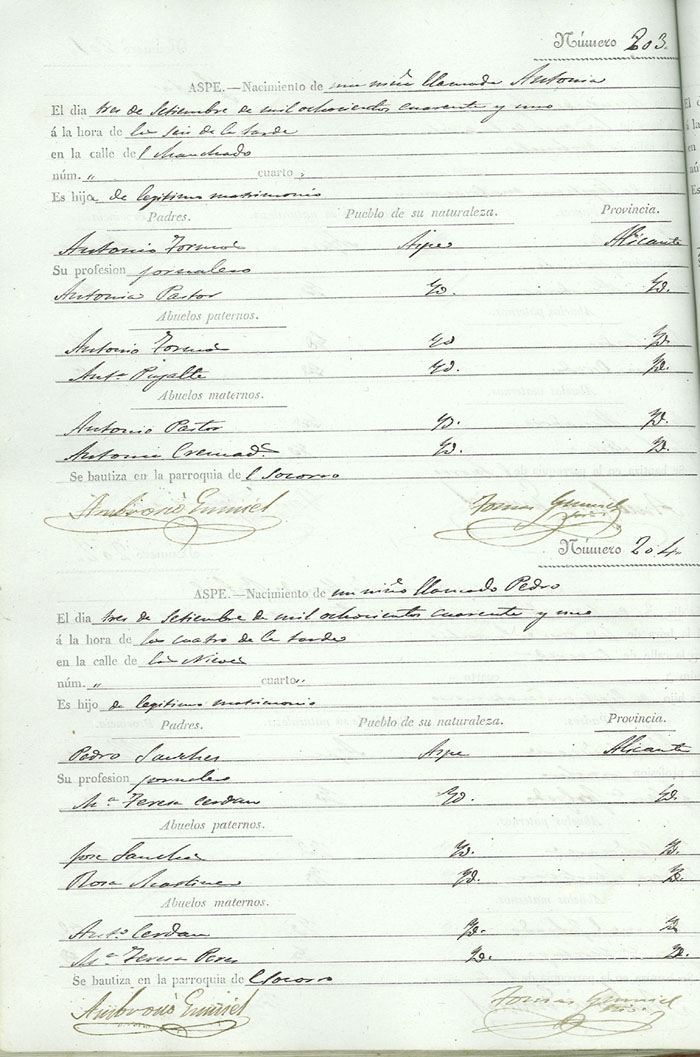 Número 203.
ASPE.—Nacimiento de una niña llamada Antonia
El dia tres de Setiembre de mil ochocientos cuarente y uno
á la hora de las seis de la tarde
en la calle del Manchado
núm. „ cuarto „
Es hija de legitimo matrimonio
Padres. Pueblo de su naturaleza. Provincia.
Antonio Aspe Alicante
Su profesion jornalero
Antonia Pastor Yd. Yd.
Abuelos paternos.
Antonio Yd Yd.
Antª Pujalte Yd. Yd.
Abuelos maternos.
Antonio Pastor Yd. Yd.
Antonia Cremad.ˢ Yd. Yd.
Se bautiza en la parroquia del Socorro
Ambrosio Tomas
Número 204.
ASPE.—Nacimiento de un niño llamado Pedro
El dia tres de Setiembre de mil ochocientos cuarente y uno
á la hora de las cuatro de la tarde
en la calle de las Nieves
núm. „ cuarto „
Es hijo de legitimo matrimonio
Padres. Pueblo de su naturaleza. Provincia.
Pedro Sanches Aspe Alicante
Su profesion jornalero
M.ª Teresa Cerdan Yd. Yd.
Abuelos paternos.
Jose Sanches Yd. Yd.
Rosa Martinez Yd. Yd.
Abuelos maternos.
Antº Cerdan Yd. Yd
M.ª Teresa Peres Yd. Yd.
Se bautiza en la parroquia del Socorro
Ambrosio Tomas